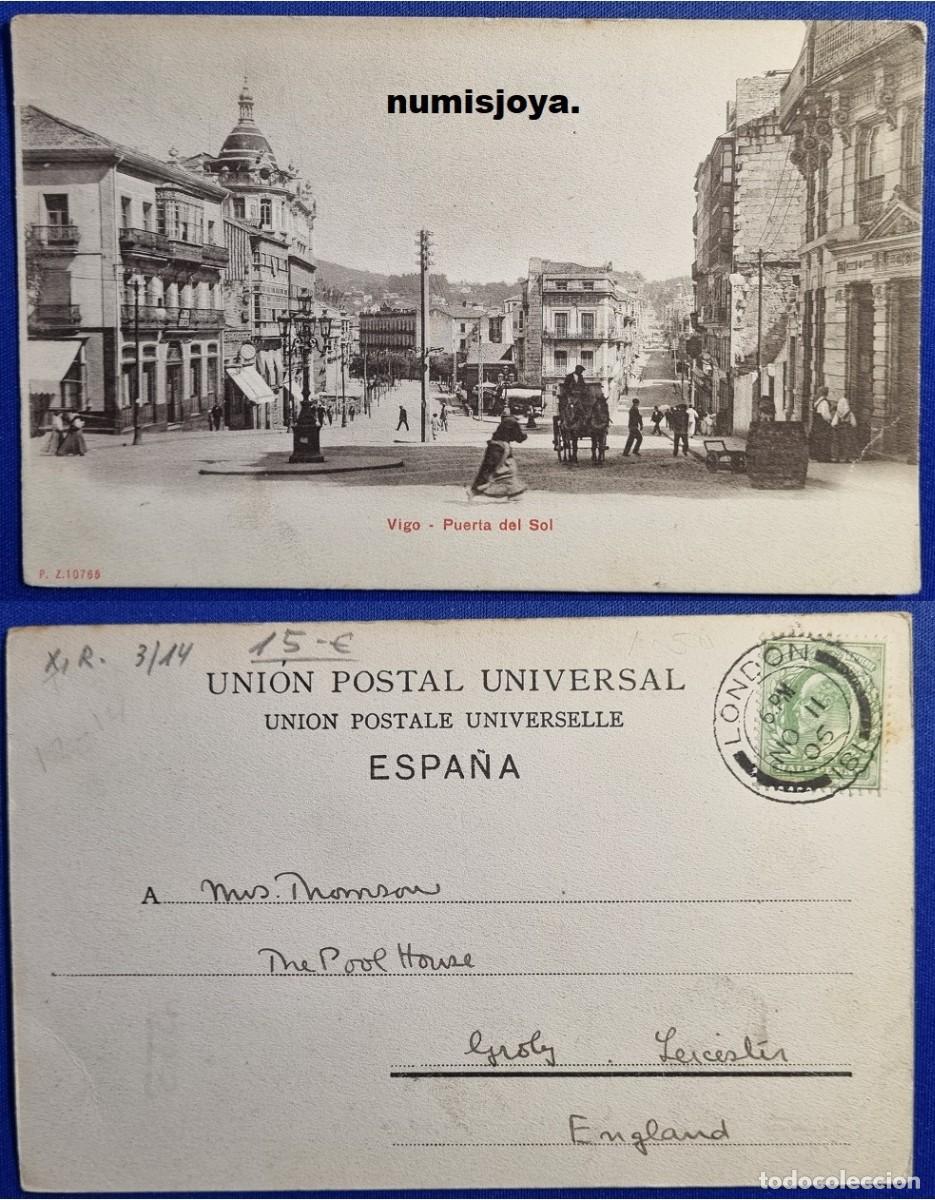 numisjoya.
Vigo - Puerta del Sol
P. Z.10766
X, R. 3/14 15-€
UNIÓN POSTAL UNIVERSAL
UNION POSTALE UNIVERSELLE
ESPAÑA
LONDON
6. PM
NO 11
05
181
A Mrs. Thomson
The Pool House
Groby . Leicester
England
todocoleccion